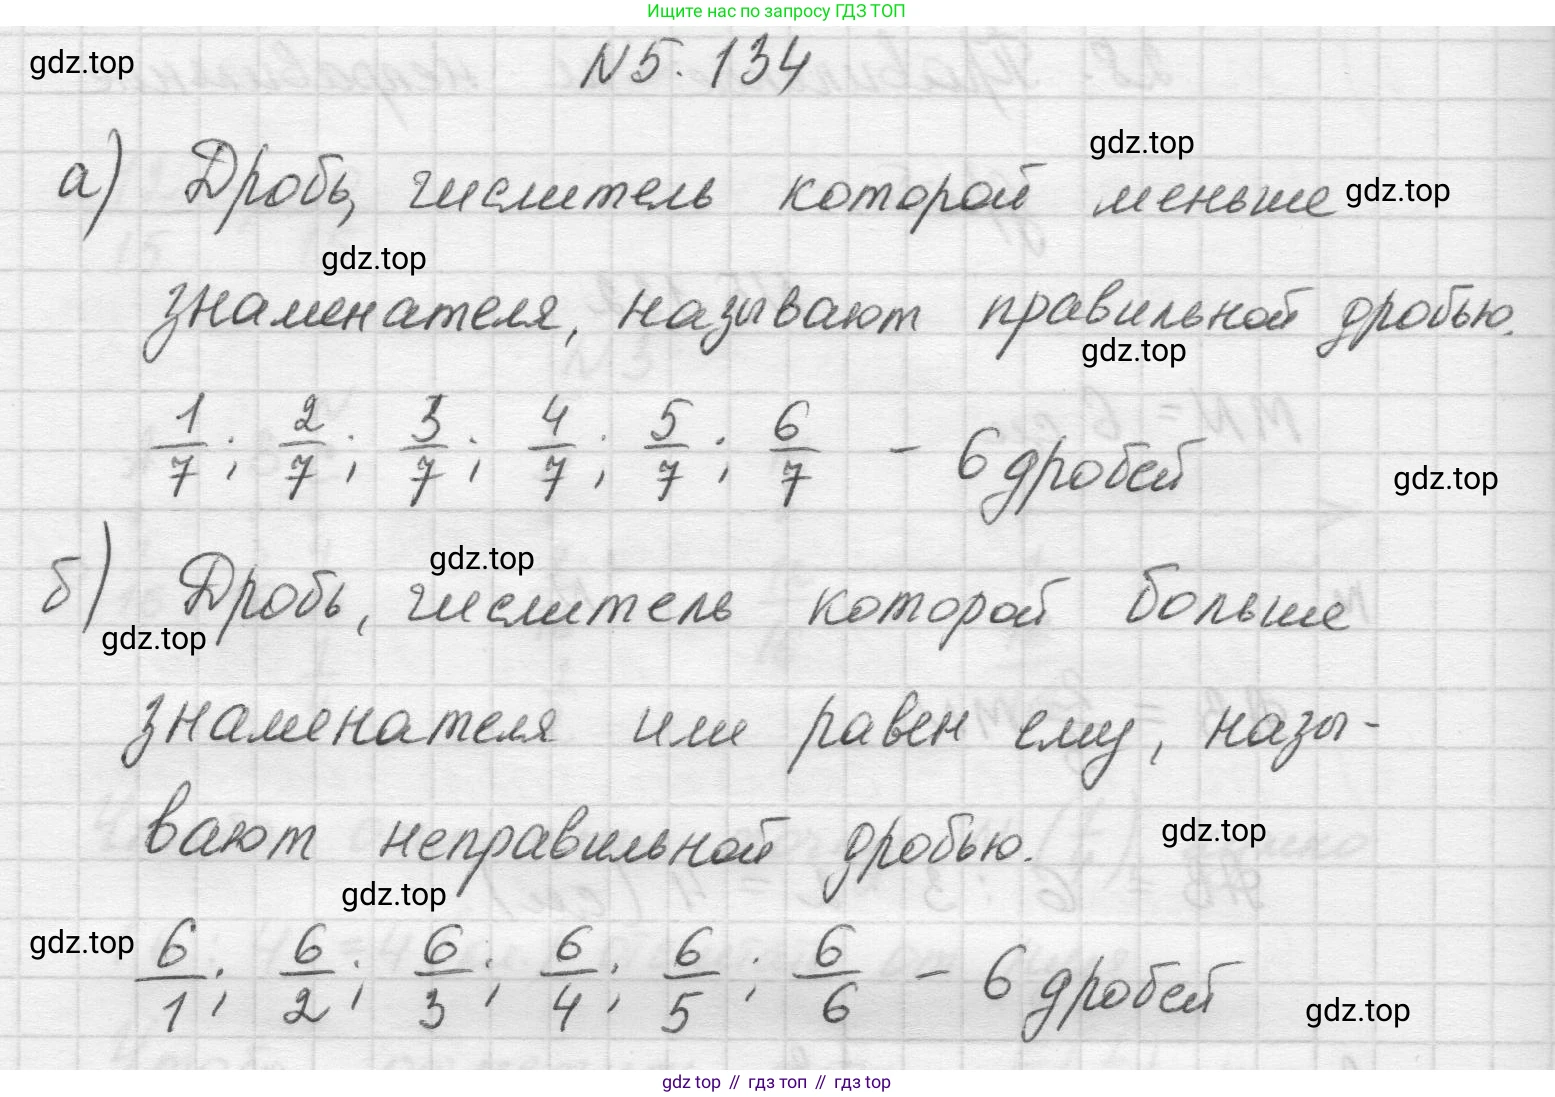 Ищите нас по запросу ГДЗ ТОП
gdz.top
N 5. 134
gdz.top
а) Дробь, числитель которой меньше
gdz.top
gdz.top
знаменателя, называют правильной дробью.
gdz.top
1/7 ; 2/7 ; 3/7 ; 4/7 ; 5/7 ; 6/7 - 6 дробей
gdz.top
gdz.top
б) Дробь, числитель которой больше
gdz.top
знаменателя или равен ему, назы-
вают неправильной дробью.
gdz.top
gdz.top
gdz.top
6/1 ; 6/2 ; 6/3 ; 6/4 ; 6/5 ; 6/6 - 6 дробей
gdz.top
gdz top // гдз топ // гдз top